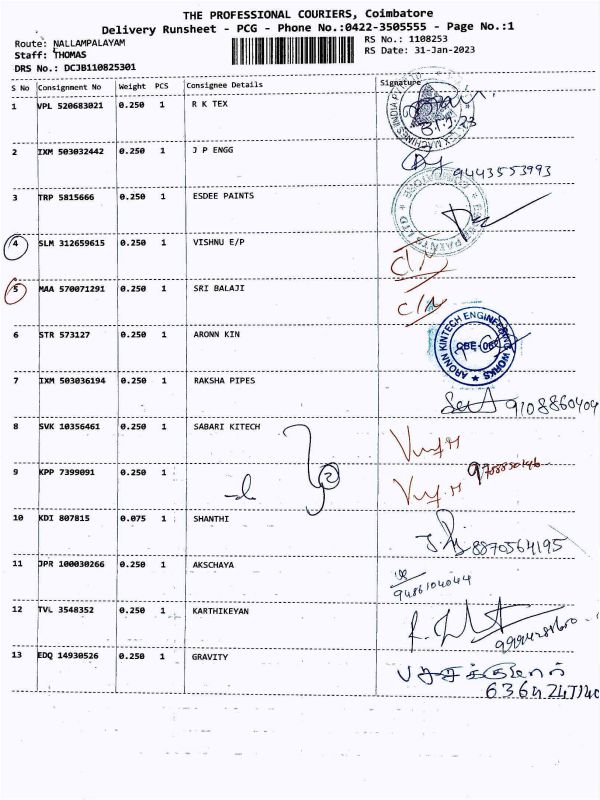 THE PROFESSIONAL COURIERS, Coimbatore
Delivery Runsheet - PCG - Phone No.:0422-3505555 - Page No.:1
Route: NALLAMPALAYAM RS No.: 1108253
Staff: THOMAS RS Date: 31-Jan-2023
DRS No.: DCJB110825301
S No Consignment No Weight PCS Consignee Details Signature
1 VPL 520683021 0.250 1 R K TEX
2 IXM 503032442 0.250 1 J P ENGG 9443553993
3 TRP 5815666 0.250 1 ESDEE PAINTS
4 SLM 312659615 0.250 1 VISHNU E/P
5 MAA 570071291 0.250 1 SRI BALAJI
6 STR 573127 0.250 1 ARONN KIN ARONN KINTECH ENGINEERING WORKS
7 IXM 503036194 0.250 1 RAKSHA PIPES 9108860404
8 SVK 10356461 0.250 1 SABARI KITECH
9 KPP 7399091 0.250 1 2
10 KDI 807815 0.075 1 SHANTHI 8870564195
11 JPR 100030266 0.250 1 AKSCHAYA 9486104044
12 TVL 3548352 0.250 1 KARTHIKEYAN
13 EDQ 14930526 0.250 1 GRAVITY